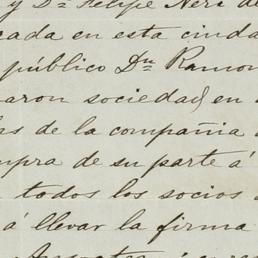 y Dn Felipe Neri de
cada en esta ciuda
público Dn Ramon
aron sociedad en
as de la compañia
mpra de su parte á
todos los socios
á llevar la firma